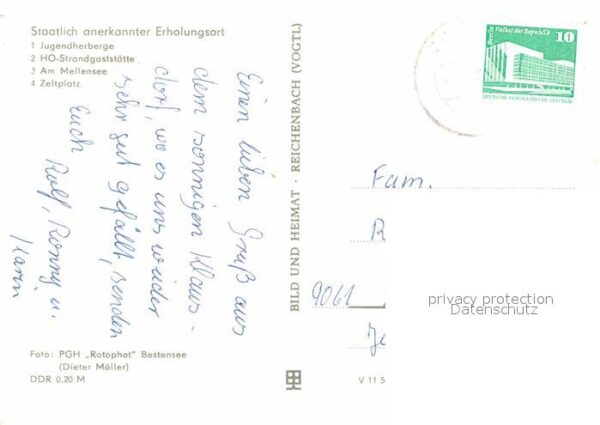 Staatlich anerkannter Erholungsort
1 Jugendherberge
2 HO-Strandgaststätte
3 Am Mellensee
4 Zeltplatz
Einen lieben Gruß aus
dem sonnigen Klaus-
dorf, wo es uns wieder
sehr gut gefällt, senden
Euch
Ralf, Ronny u.
Karin
Foto: PGH „Rotophot" Bestensee
(Dieter Möller)
DDR 0,20 M
BILD UND HEIMAT · REICHENBACH (VOGTL)
V 11 5
Berlin, Palast der Republik
10
DEUTSCHE DEMOKRATISCHE REPUBLIK
Fam.
R
9061
privacy protection
Datenschutz